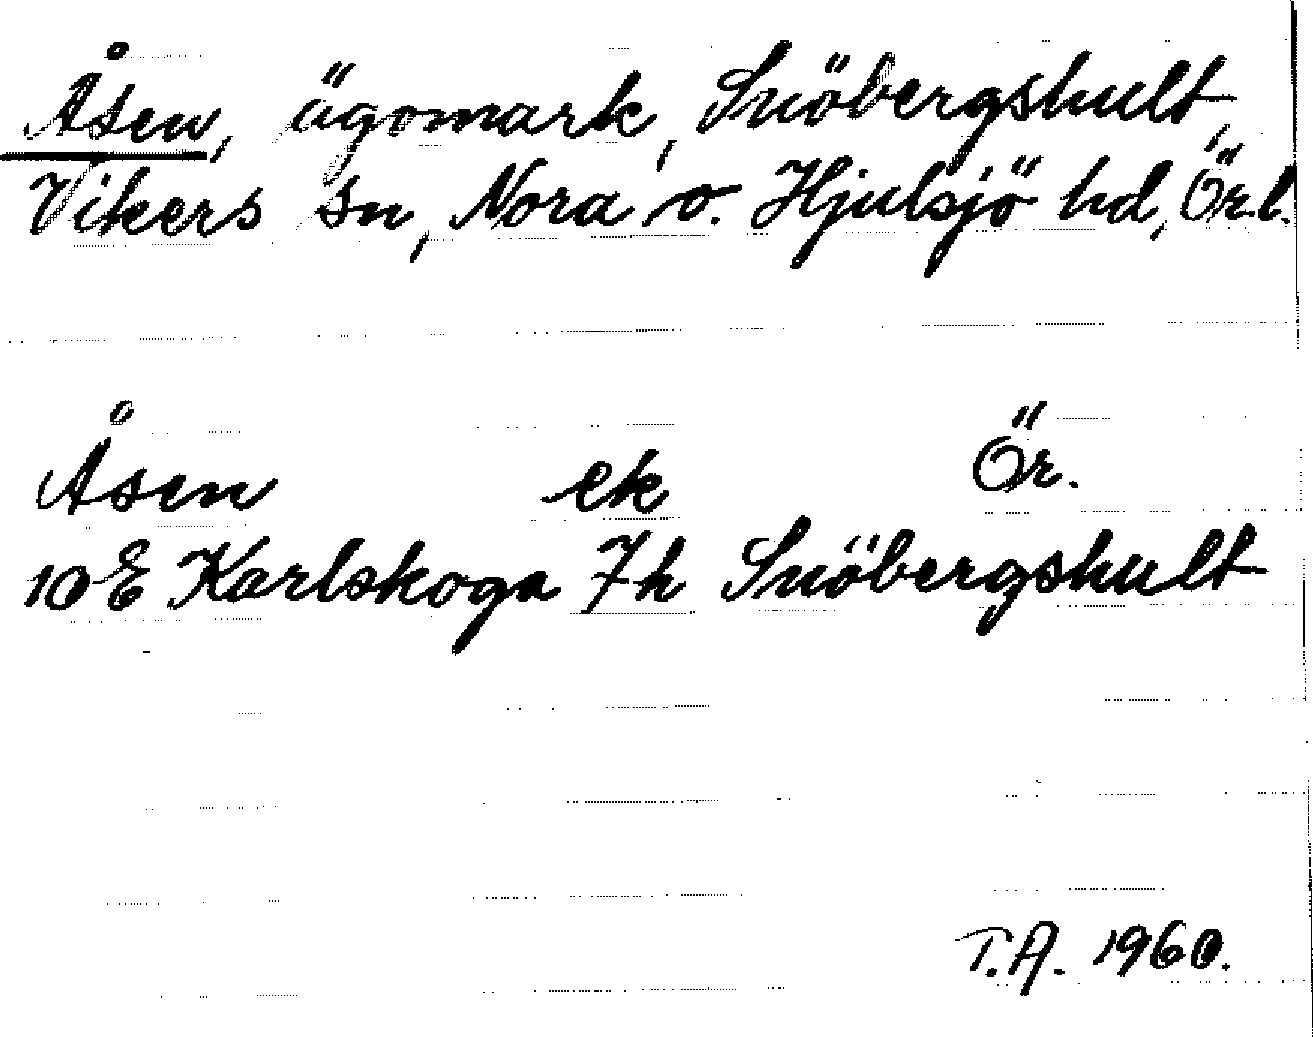 Åsen, ägomark, Snöbergshult,
Vikers sn, Nora o. Hjulsjö hd, Ör.l.
Åsen ek Ör.
10E Karlskoga 7h Snöbergshult
T.A. 1960.